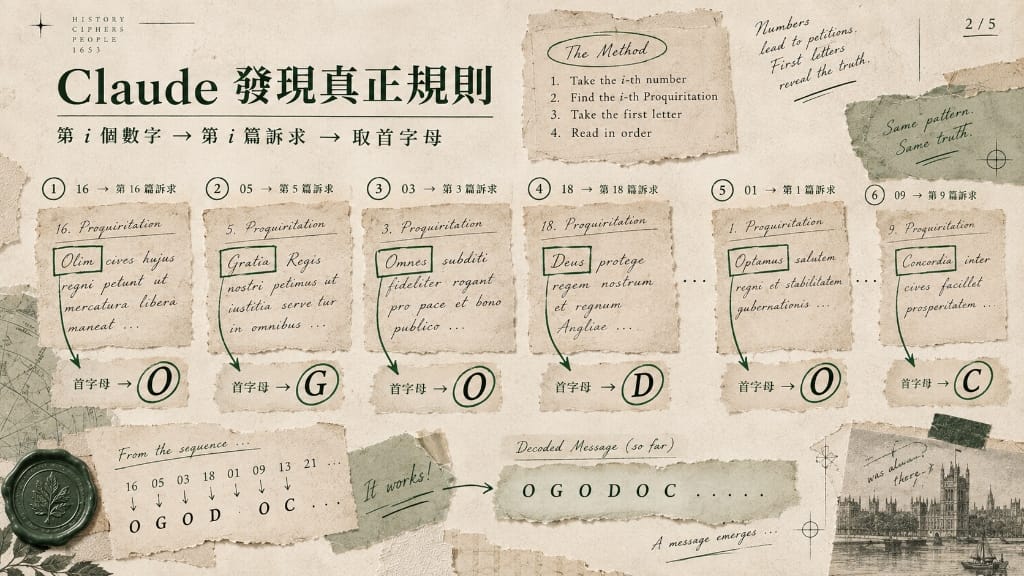 HISTORY
CIPHERS
PEOPLE
1653
Claude 發現真正規則
第 i 個數字 → 第 i 篇訴求 → 取首字母
The Method
1. Take the i-th number
2. Find the i-th Proquiritation
3. Take the first letter
4. Read in order
Numbers
lead to petitions.
First letters
reveal the truth.
2/5
Same pattern.
Same truth.
1 16 → 第 16 篇訴求
16. Proquiritation
Olim cives hujus
regni petunt ut
mercatura libera
maneat ...
首字母 → O
2 05 → 第 5 篇訴求
5. Proquiritation
Gratia Regis
nostri petimus ut
iustitia serve tur
in omnibus ...
首字母 → G
3 03 → 第 3 篇訴求
3. Proquiritation
Omnes subditi
fideliter rogant
pro pace et bono
publico ...
首字母 → O
4 18 → 第 18 篇訴求
18. Proquiritation
Deus protege
regem nostrum
et regnum
Angliae ...
首字母 → D
...
5 01 → 第 1 篇訴求
1. Proquiritation
Optamus salutem
regni et stabilitatem
gubernationis ...
首字母 → O
...
6 09 → 第 9 篇訴求
9. Proquiritation
Concordia inter
cives facillet
prosperitatem ...
首字母 → C
From the sequence ...
16 05 03 18 01 09 13 21 ...
↓ ↓ ↓ ↓ ↓ ↓ ↓
O G O D O C ...
It works!
Decoded Message (so far)
O G O D O C . . . . . .
A message emerges ...
was always
there.